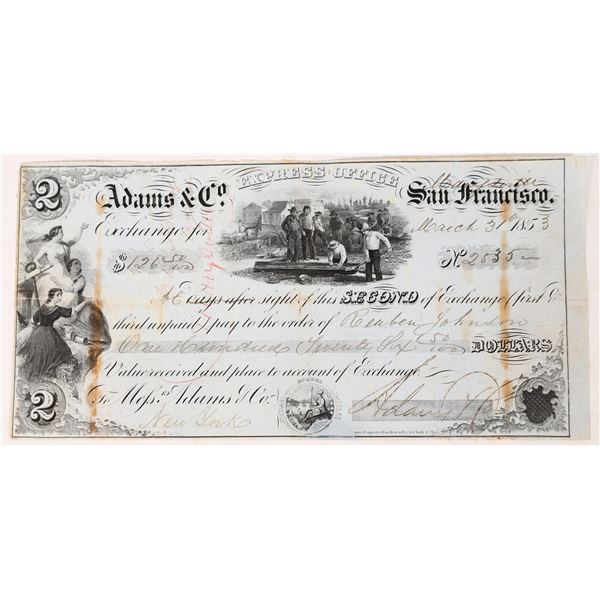 2
EXPRESS OFFICE
Adams & Co. San Francisco.
Exchange for March 31st 1853
$126 50/100 No 2535
At days after sight of this SECOND of Exchange (first &
third unpaid) pay to the order of Reuben Johnson
One Hundred Twenty Six 50/100 DOLLARS
Value received and place to account of Exchange
EUREKA
To Messrs. Adams & Co. Adams & Co
New York
2